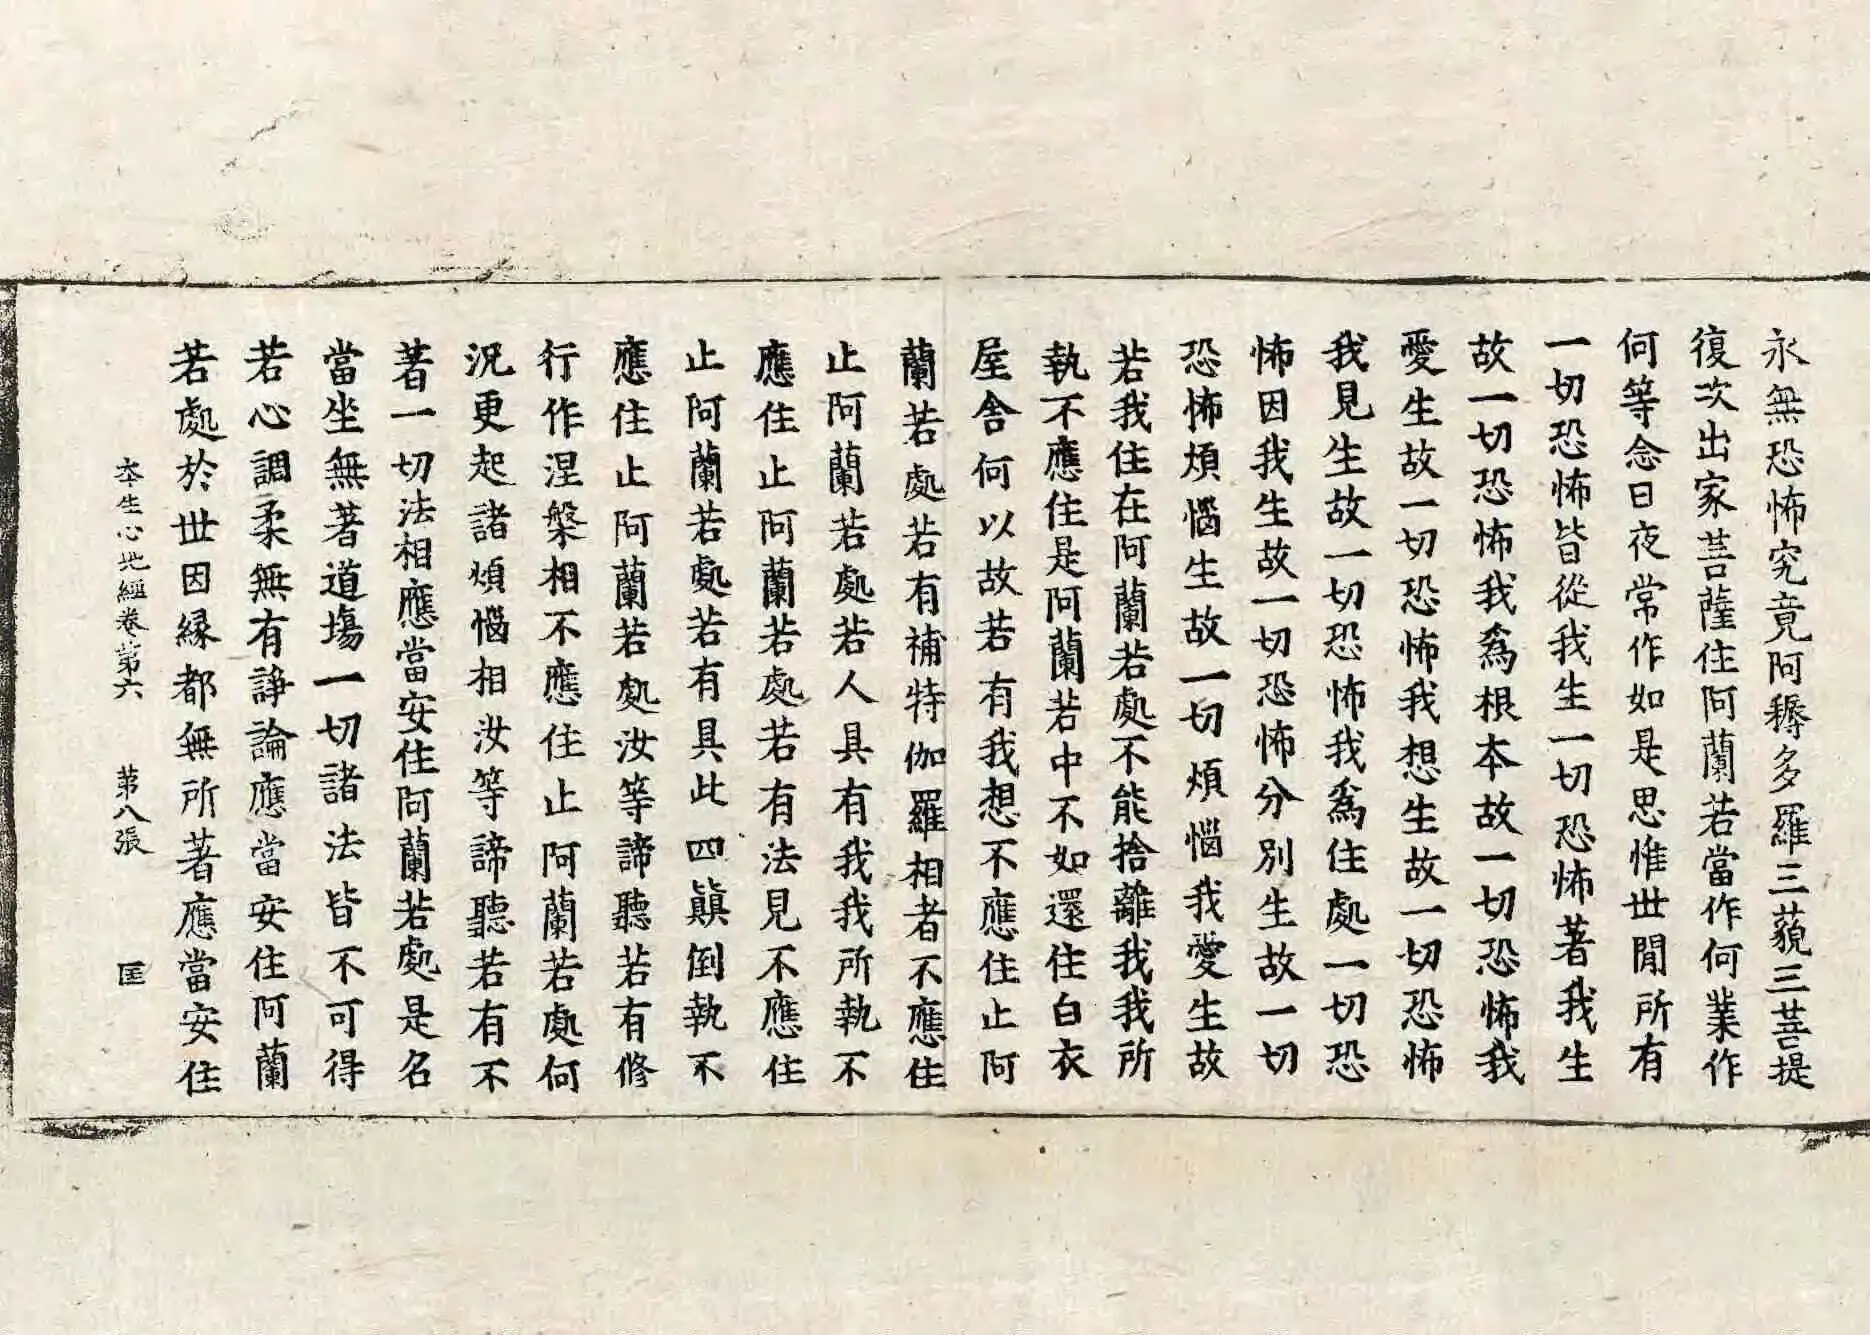 永無恐怖究竟阿耨多羅三藐三菩提
復次出家菩薩住阿蘭若當作何業作
何等念日夜常作如是思惟世間所有
一切恐怖皆從我生一切恐怖著我生
故一切恐怖我爲根本故一切恐怖我
愛生故一切恐怖我想生故一切恐怖
我見生故一切恐怖我爲住處一切恐
怖因我生故一切恐怖分別生故一切
恐怖煩惱生故一切煩惱我愛生故
若我住在阿蘭若處不能捨離我我所
執不應住是阿蘭若中不如還住白衣
屋舍何以故若有我想不應住止阿
蘭若處若有補特伽羅相者不應住
止阿蘭若處若人具有我我所執不
應住止阿蘭若處若有法見不應住
止阿蘭若處若有具此四顛倒執不
應住止阿蘭若處汝等諦聽若有修
行作涅槃相不應住止阿蘭若處何
況更起諸煩惱相汝等諦聽若有不
著一切法相應當安住阿蘭若處是名
當坐無著道場一切諸法皆不可得
若心調柔無有諍論應當安住阿蘭
若處於世因緣都無所著應當安住
本生心地經卷第六 第八張 匡